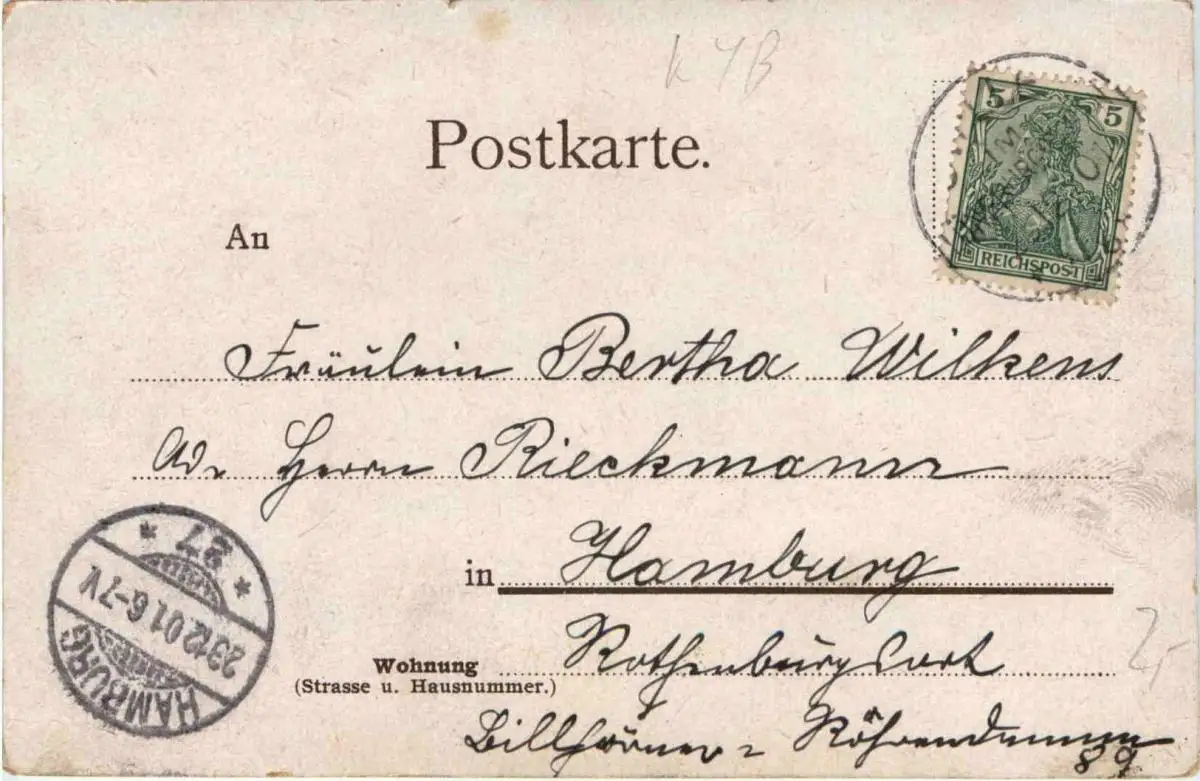 k 4B
Postkarte.
5 5
REICHSPOST
An
Fräulein Bertha Wilkens
Adr. Herrn Rieckmann
in Hamburg
Wohnung Rothenburgsort
(Strasse u. Hausnummer.)
Billhörner = Röhrendamm
89
HAMBURG
23.12.01. 6-7V.
* 27 *
2,-